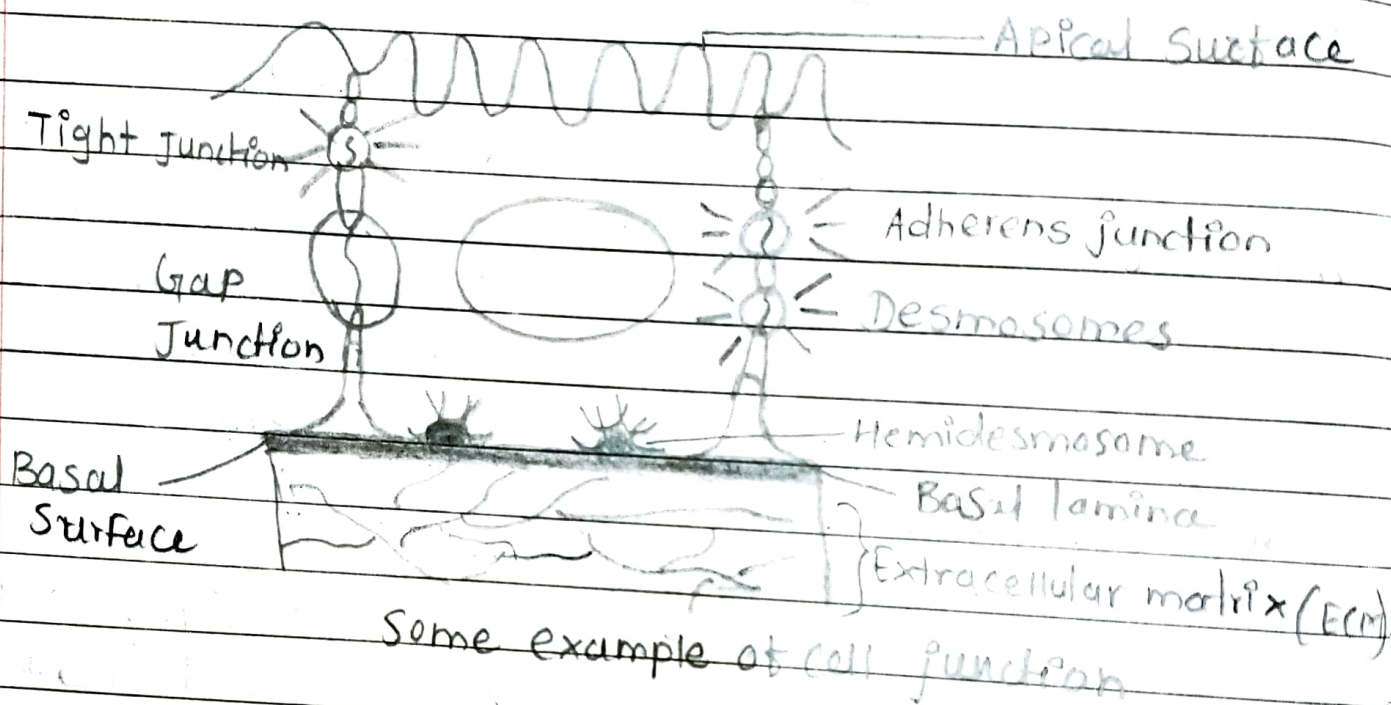 Apical Surface
Tight Junction
Adherens junction
Gap
Junction
Desmosomes
Hemidesmosome
Basal
Surface
Basal lamina
Extracellular matrix (ECM)
Some example of cell junction